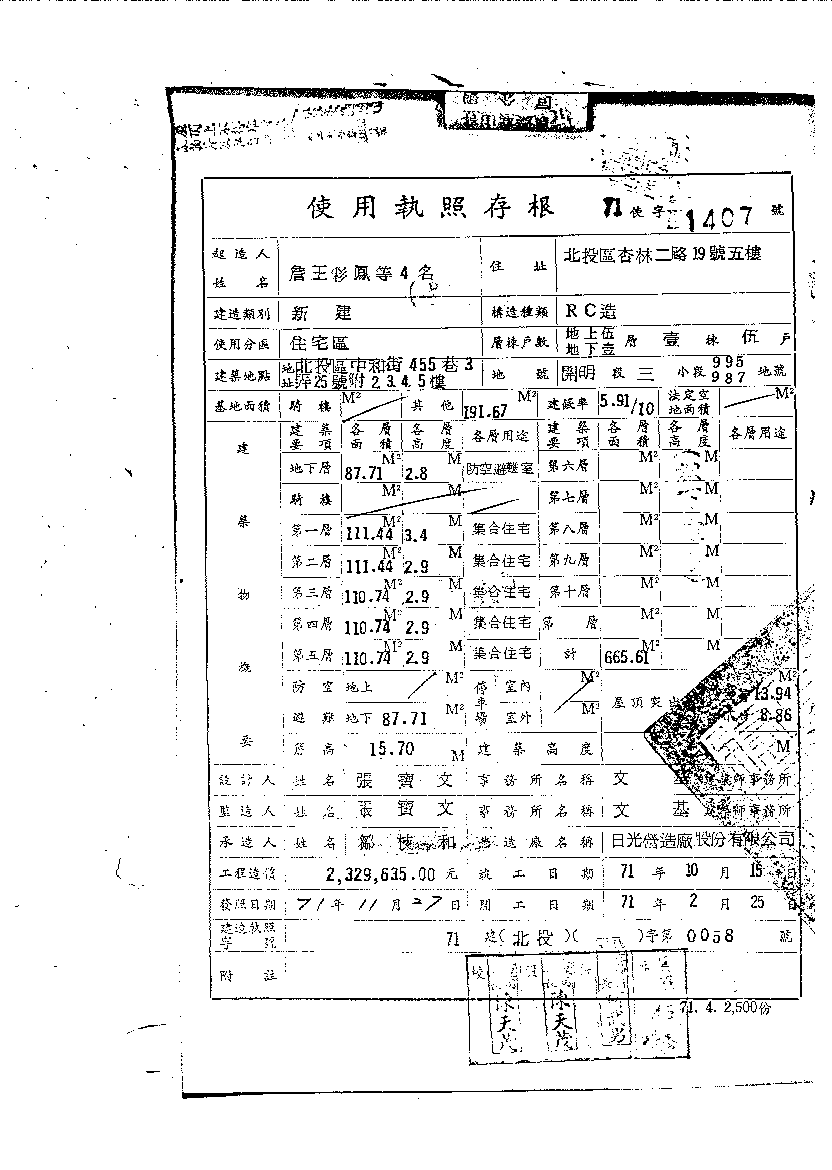 使用執照存根 71使字 1407 號
起造人姓名 詹王彩鳳等4名 住址 北投區杏林二路19號五樓
建造類別 新建 構造種類 RC造
使用分區 住宅區 層棟戶數 地上伍地下壹層 壹棟 伍戶
建築地點 地址 北投區中和街455巷3弄25號附2.3.4.5樓 地號 開明段三小段 995 987 地號
基地面積 騎樓 M² 其他 191.67 M² 建蔽率 5.91/10 法定空地面積 M²
建築物概要 建築要項 各層面積 各層高度 各層用途 建築要項 各層面積 各層高度 各層用途
地下層 87.71 M² 2.8 M 防空避難室 第六層 M² M
騎樓 M² M 第七層 M² M
第一層 111.44 M² 3.4 M 集合住宅 第八層 M² M
第二層 111.44 M² 2.9 M 集合住宅 第九層 M² M
第三層 110.74 M² 2.9 M 集合住宅 第十層 M² M
第四層 110.74 M² 2.9 M 集合住宅 第 層 M² M
第五層 110.74 M² 2.9 M 集合住宅 計 665.61 M² M
防空避難 地上 M² 停車場 室內 M² 屋頂突出 13.94 M²
地下 87.71 M² 室外 M² 8.86
簷高 15.70 M 建築高度 M
設計人 姓名 張寶文 事務所名稱 文基建築師事務所
監造人 姓名 張寶文 事務所名稱 文基建築師事務所
承造人 姓名 鄒 和 營造廠名稱 日光營造廠股份有限公司
工程造價 2,329,635.00 元 竣工日期 71年10月15日
發照日期 71年11月27日 開工日期 71年2月25日
建造執照字號 71 建(北投)( )字第 0058 號
附註
陳天茂 陳天茂
71. 4. 2,500份